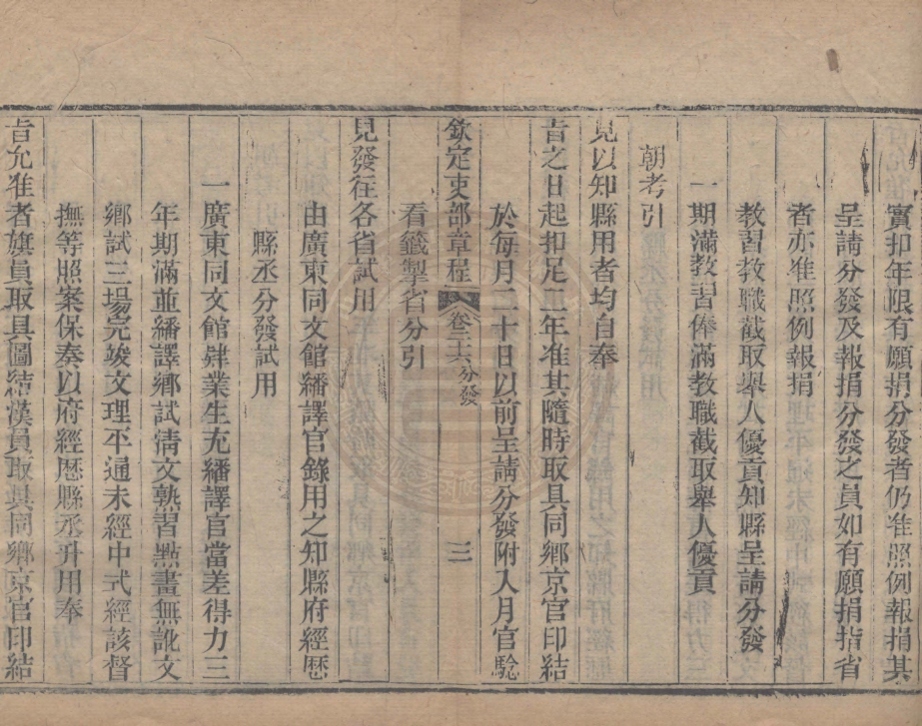 實扣年限有願捐分發者仍准照例報捐其
呈請分發及報捐分發之員如有願捐指省
者亦准照例報捐
教習教職截取舉人優貢知縣呈請分發
一期滿教習俸滿教職截取舉人優貢
朝考引
見以知縣用者均自奉
旨之日起扣足三年准其隨時取具同鄉京官印結
於每月二十日以前呈請分發附入月官驗
欽定吏部章程 卷三六分發 三
看籤掣省分引
見發往各省試用
由廣東同文館繙譯官錄用之知縣府經歷
縣丞分發試用
一廣東同文館肄業生充繙譯官當差得力三
年期滿並繙譯鄉試清文熟習點畫無訛文
鄉試三場完竣文理平通未經中式經該督
撫等照案保奏以府經歷縣丞升用奉
旨允准者旗員取具圖結漢員取具同鄉京官印結